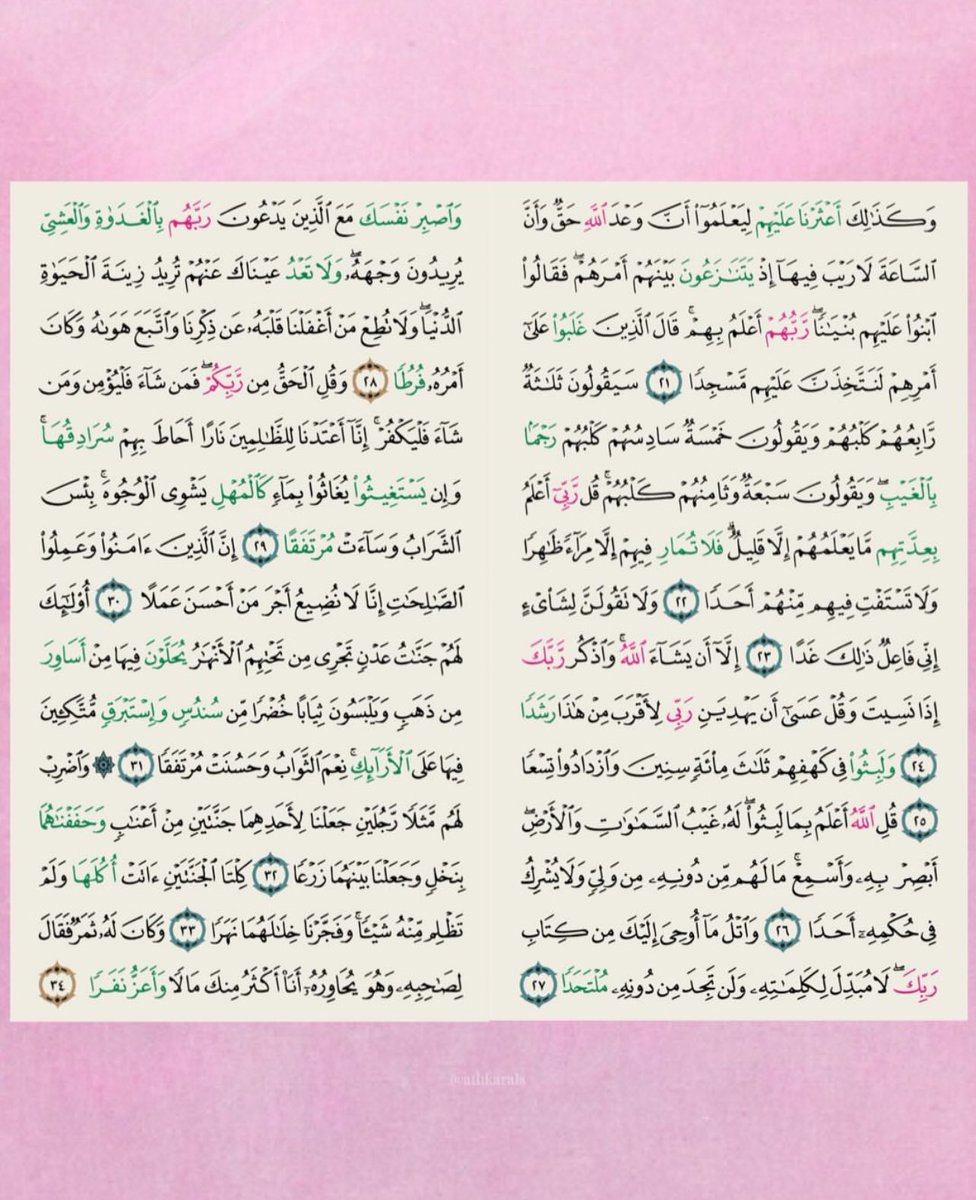 وَكَذَٰلِكَ أَعْثَرْنَا عَلَيْهِمْ لِيَعْلَمُوٓا۟ أَنَّ وَعْدَ ٱللَّهِ حَقٌّ وَأَنَّ
ٱلسَّاعَةَ لَا رَيْبَ فِيهَآ إِذْ يَتَنَٰزَعُونَ بَيْنَهُمْ أَمْرَهُمْ ۖ فَقَالُوا۟
ٱبْنُوا۟ عَلَيْهِم بُنْيَٰنًا ۖ رَّبُّهُمْ أَعْلَمُ بِهِمْ ۚ قَالَ ٱلَّذِينَ غَلَبُوا۟ عَلَىٰٓ
أَمْرِهِمْ لَنَتَّخِذَنَّ عَلَيْهِم مَّسْجِدًا ٢١ سَيَقُولُونَ ثَلَٰثَةٌ
رَّابِعُهُمْ كَلْبُهُمْ وَيَقُولُونَ خَمْسَةٌ سَادِسُهُمْ كَلْبُهُمْ رَجْمًۢا
بِٱلْغَيْبِ ۖ وَيَقُولُونَ سَبْعَةٌ وَثَامِنُهُمْ كَلْبُهُمْ ۚ قُل رَّبِّىٓ أَعْلَمُ
بِعِدَّتِهِم مَّا يَعْلَمُهُمْ إِلَّا قَلِيلٌ ۗ فَلَا تُمَارِ فِيهِمْ إِلَّا مِرَآءً ظَٰهِرًا
وَلَا تَسْتَفْتِ فِيهِم مِّنْهُمْ أَحَدًا ٢٢ وَلَا تَقُولَنَّ لِشَا۟ىْءٍ
إِنِّى فَاعِلٌ ذَٰلِكَ غَدًا ٢٣ إِلَّآ أَن يَشَآءَ ٱللَّهُ ۚ وَٱذْكُر رَّبَّكَ
إِذَا نَسِيتَ وَقُلْ عَسَىٰٓ أَن يَهْدِيَنِ رَبِّى لِأَقْرَبَ مِنْ هَٰذَا رَشَدًا
٢٤ وَلَبِثُوا۟ فِى كَهْفِهِمْ ثَلَٰثَ مِا۟ئَةٍ سِنِينَ وَٱزْدَادُوا۟ تِسْعًا
٢٥ قُلِ ٱللَّهُ أَعْلَمُ بِمَا لَبِثُوا۟ ۖ لَهُۥ غَيْبُ ٱلسَّمَٰوَٰتِ وَٱلْأَرْضِ ۖ
أَبْصِرْ بِهِۦ وَأَسْمِعْ ۚ مَا لَهُم مِّن دُونِهِۦ مِن وَلِىٍّ وَلَا يُشْرِكُ
فِى حُكْمِهِۦٓ أَحَدًا ٢٦ وَٱتْلُ مَآ أُوحِىَ إِلَيْكَ مِن كِتَابِ
رَبِّكَ ۖ لَا مُبَدِّلَ لِكَلِمَٰتِهِۦ وَلَن تَجِدَ مِن دُونِهِۦ مُلْتَحَدًا ٢٧
وَٱصْبِرْ نَفْسَكَ مَعَ ٱلَّذِينَ يَدْعُونَ رَبَّهُم بِٱلْغَدَوٰةِ وَٱلْعَشِىِّ
يُرِيدُونَ وَجْهَهُۥ ۖ وَلَا تَعْدُ عَيْنَاكَ عَنْهُمْ تُرِيدُ زِينَةَ ٱلْحَيَوٰةِ
ٱلدُّنْيَا ۖ وَلَا تُطِعْ مَنْ أَغْفَلْنَا قَلْبَهُۥ عَن ذِكْرِنَا وَٱتَّبَعَ هَوَىٰهُ وَكَانَ
أَمْرُهُۥ فُرُطًا ٢٨ وَقُلِ ٱلْحَقُّ مِن رَّبِّكُمْ ۖ فَمَن شَآءَ فَلْيُؤْمِن وَمَن
شَآءَ فَلْيَكْفُرْ ۚ إِنَّآ أَعْتَدْنَا لِلظَّٰلِمِينَ نَارًا أَحَاطَ بِهِمْ سُرَادِقُهَا ۚ
وَإِن يَسْتَغِيثُوا۟ يُغَاثُوا۟ بِمَآءٍ كَٱلْمُهْلِ يَشْوِى ٱلْوُجُوهَ ۚ بِئْسَ
ٱلشَّرَابُ وَسَآءَتْ مُرْتَفَقًا ٢٩ إِنَّ ٱلَّذِينَ ءَامَنُوا۟ وَعَمِلُوا۟
ٱلصَّٰلِحَٰتِ إِنَّا لَا نُضِيعُ أَجْرَ مَنْ أَحْسَنَ عَمَلًا ٣٠ أُو۟لَٰٓئِكَ
لَهُمْ جَنَّٰتُ عَدْنٍ تَجْرِى مِن تَحْتِهِمُ ٱلْأَنْهَٰرُ يُحَلَّوْنَ فِيهَا مِنْ أَسَاوِرَ
مِن ذَهَبٍ وَيَلْبَسُونَ ثِيَابًا خُضْرًا مِّن سُندُسٍ وَإِسْتَبْرَقٍ مُّتَّكِـِٔينَ
فِيهَا عَلَى ٱلْأَرَآئِكِ ۚ نِعْمَ ٱلثَّوَابُ وَحَسُنَتْ مُرْتَفَقًا ٣١ ۞ وَٱضْرِبْ
لَهُم مَّثَلًا رَّجُلَيْنِ جَعَلْنَا لِأَحَدِهِمَا جَنَّتَيْنِ مِنْ أَعْنَٰبٍ وَحَفَفْنَٰهُمَا
بِنَخْلٍ وَجَعَلْنَا بَيْنَهُمَا زَرْعًا ٣٢ كِلْتَا ٱلْجَنَّتَيْنِ ءَاتَتْ أُكُلَهَا وَلَمْ
تَظْلِم مِّنْهُ شَيْـًٔا ۚ وَفَجَّرْنَا خِلَٰلَهُمَا نَهَرًا ٣٣ وَكَانَ لَهُۥ ثَمَرٌ فَقَالَ
لِصَٰحِبِهِۦ وَهُوَ يُحَاوِرُهُۥٓ أَنَا۠ أَكْثَرُ مِنكَ مَالًا وَأَعَزُّ نَفَرًا ٣٤